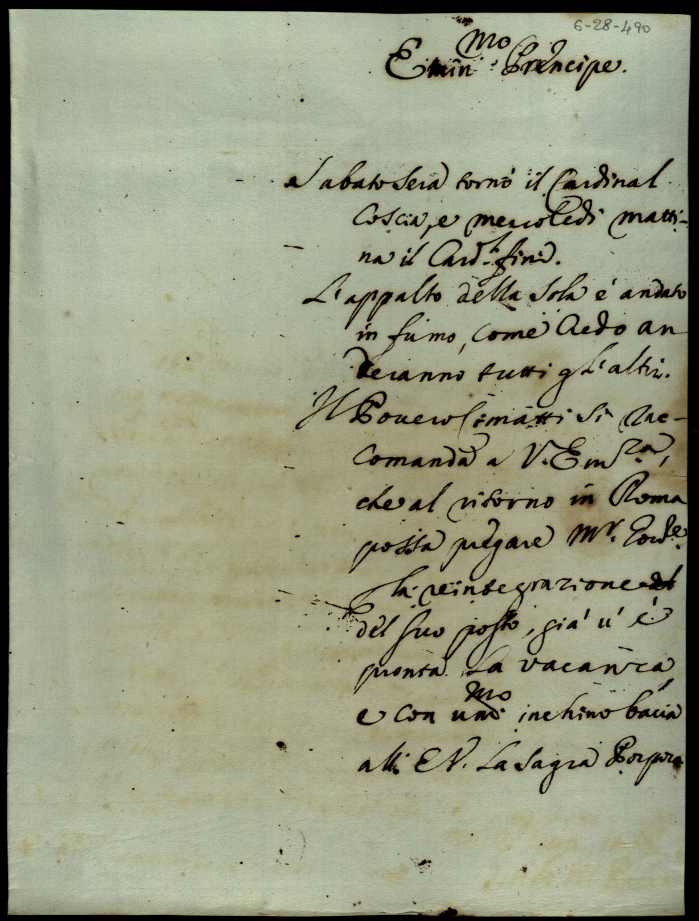 6-28-490
Emin.mo Principe.
Sabato Sera tornò il Cardinal
Coscia, e mercoledì matti-
na il Card.l fini.
L'appalto della Sola è andato
in fumo, come credo an
deranno tutti gl'altri.
Il Povero Cimatti si rac-
comanda a V. Em.za,
che al ritorno in Roma
possa pregare Mr.
p la reintegrazione
del suo posto, già v'è
pronta la vacanza
e con um.mo inchino bacia
all' E.V. La Sagra Porpora